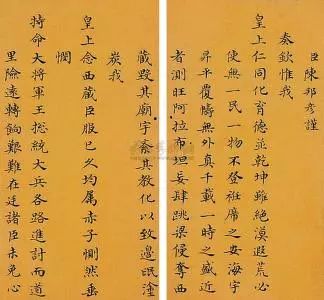 臣陳邦彥謹
奏欽惟我
皇上仁同化育德並乾坤雖絕漠遐荒必
使無一民一物不登衽席之安海宇
昇平覆幬無外真千載一時之盛近
者測旺阿拉布坦妄肆跳梁侵奪西
藏毀其廟宇紊其教化以致邊氓塗
炭我
皇上念西藏臣服已久均屬赤子惻然垂
憫
特命大將軍王總統大兵各路進討而道
里險遠轉餉艱難在廷諸臣未免心